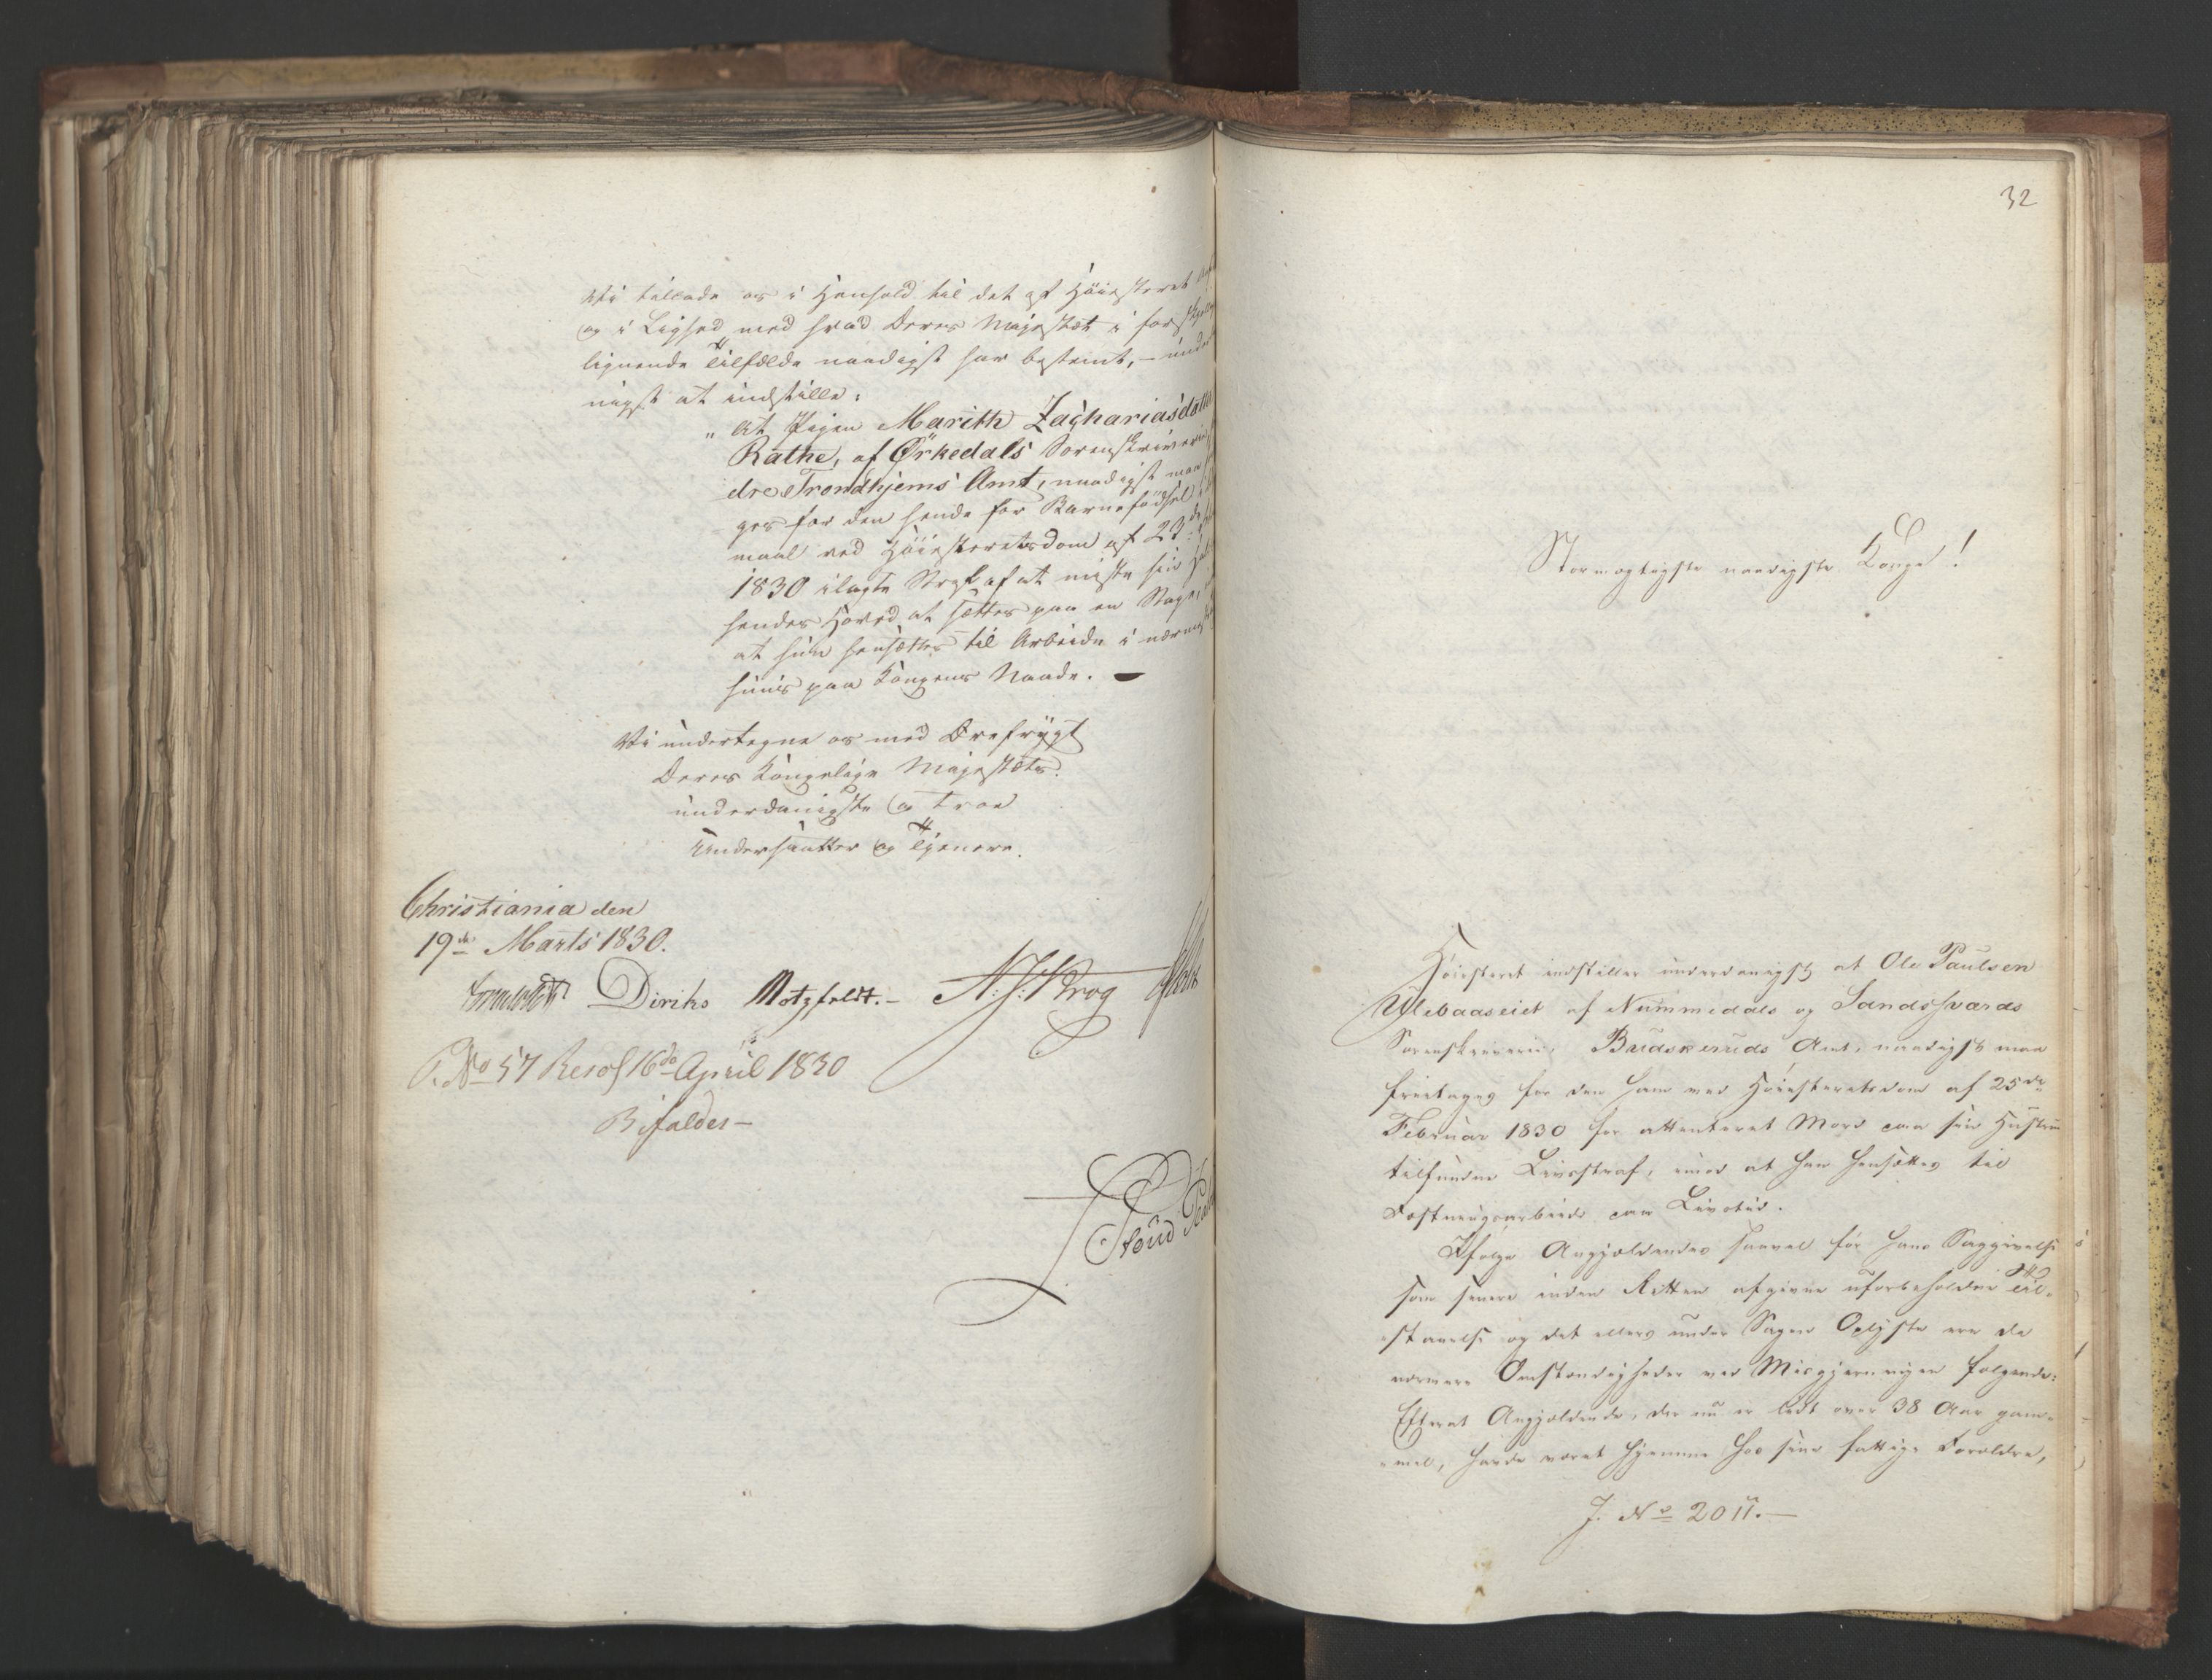 Vi tillade os i Henhold til det af Höiesteret
og i Lighed med hvad Deres Majestæt i forskjellige
lignende Tilfælde naadigst har bestemt, – under
nigst at indstille:
„At Pigen Marith Zachariasdatter
Rathe, af Örkedals Sorenskriveri,
dre Trondhjems Amt, naadigst maa
ges for den hende for Barnefödsel i
maal ved Höiesteretsdom af 23de
1830 ilagte Straf af at miste sin Hals
hendes Hoved at sættes paa en Stage,
at hun hensættes til Arbeide i nærmeste
huus paa Kongens Naade. –
Vi undertegne os med Ærefrygt
Deres Kongelige Majestæts
underdanigste og troe
Undersaatter og Tjenere.
Christiania den
19de Marts 1830.
Diriks Motzfeldt. – N. J. Krog Holst
P. No 57 Resol 16de April 1830
Bifaldes –
32
Stormægtigste naadigste Konge!
Höiesteret indstiller underdanigst at Ole Paulsen
Ulebaaseiet af Nummedals og Sandsværds
Sorenskriveri, Budskeruds Amt, naadigst maa
fritages for den ham ved Höiesteretsdom af 25de
Februar 1830 for attenteret Mord paa sin Hustru
tilfundne Livsstraf, imod at han hensættes til
Fæstningsarbeide paa Livstid.
Ifölge Angjældendes saavel för hans Saggivelse
som senere inden Retten afgivne uforbeholdne Til-
staaelse og det ellers under Sagen Oplyste ere de
nærmere Omstændigheder ved Misgjerningen fölgende:
Efterat Angjældende, der nu er lidt over 38 Aar gam-
mel, havde været hjemme hos sine fattige Forældre,
J. No 2011. –